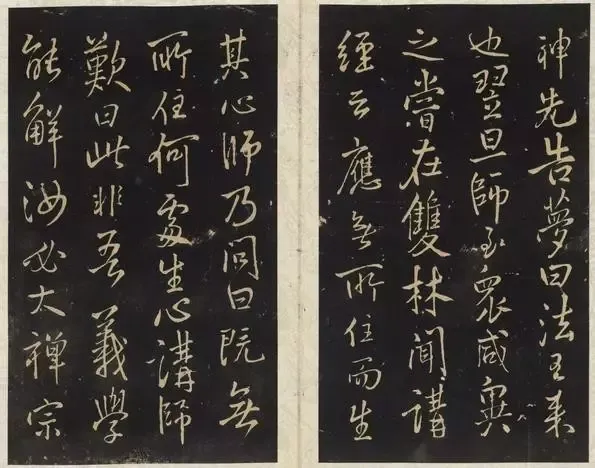 神先告夢曰法王來
也翌旦師至眾咸異
之嘗在雙林聞講
經云應無所住而生
其心師乃問曰既無
所住何處生心講師
歎曰此非吾義學
能解汝必大禪宗